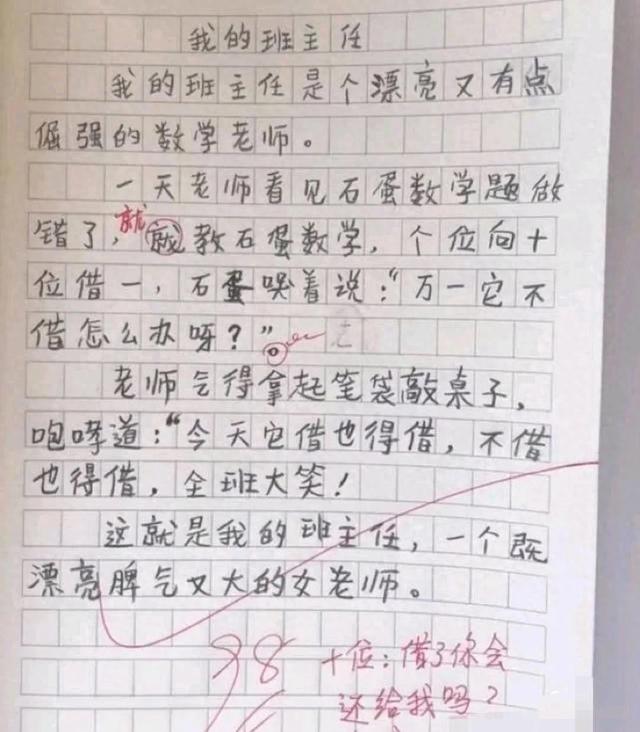 我的班主任
我的班主任是个漂亮又有点
倔强的数学老师。
一天老师看见石蛋数学题做
错了,就教石蛋数学,个位向十
位借一,石蛋哭着说:“万一它不
借怎么办呀?”。
老师气得拿起笔袋敲桌子,
咆哮道:“今天它借也得借,不借
也得借,全班大笑!
这就是我的班主任,一个既
漂亮脾气又大的女老师。
98
十位:借了你会
还给我吗?